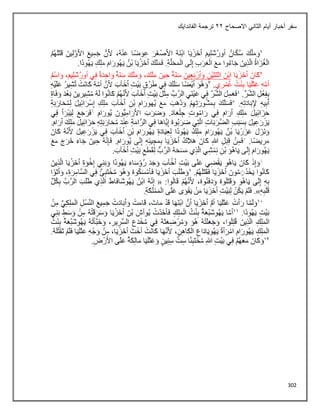 سفر أخبار أيام الثاني الاصحاح ٢٢ ترجمة الفاندايك
١وَمَلَّكَ سُكَّانُ أُورُشَلِيمَ أَخَزْيَا ابْنَهُ الأَصْغَرَ عِوَضًا عَنْهُ، لأَنَّ جَمِيعَ الأَوَّلِينَ قَتَلَهُمُ
الْغُزَاةُ الَّذِينَ جَاءُوا مَعَ الْعَرَبِ إِلَى الْمَحَلَّةِ. فَمَلَكَ أَخَزْيَا بْنُ يَهُورَامَ مَلِكِ يَهُوذَا.
٢كَانَ أَخَزْيَا ابْنَ اثْنَتَيْنِ وَأَرْبَعِينَ سَنَةً حِينَ مَلَكَ، وَمَلَكَ سَنَةً وَاحِدَةً فِي أُورُشَلِيمَ، وَاسْمُ
أُمِّهِ عَثَلْيَا بِنْتُ عُمْرِي. ٣وَهُوَ أَيْضًا سَلَكَ فِي طُرُقِ بَيْتِ أَخْآبَ لأَنَّ أُمَّهُ كَانَتْ تُشِيرُ عَلَيْهِ
بِفِعْلِ الشَّرِّ. ٤فَعَمِلَ الشَّرَّ فِي عَيْنَيِ الرَّبِّ مِثْلَ بَيْتِ أَخْآبَ لأَنَّهُمْ كَانُوا لَهُ مُشِيرِينَ بَعْدَ وَفَاةِ
أَبِيهِ لإِبَادَتِهِ. ٥فَسَلَكَ بِمَشُورَتِهِمْ وَذَهَبَ مَعَ يَهُورَامَ بْنِ أَخْآبَ مَلِكِ إِسْرَائِيلَ لِمُحَارَبَةِ
حَزَائِيلَ مَلِكِ أَرَامَ فِي رَامُوتِ جِلْعَادَ. وَضَرَبَ الأَرَامِيُّونَ يُورَامَ ٦فَرَجَعَ لِيَبْرَأَ فِي
يِزْرَعِيلَ بِسَبَبِ الضَّرَبَاتِ الَّتِي ضَرَبُوهُ إِيَّاهَا فِي الرَّامَةِ عِنْدَ مُحَارَبَتِهِ حَزَائِيلَ مَلِكِ أَرَامَ.
وَنَزَلَ عَزَرْيَا بْنُ يَهُورَامَ مَلِكُ يَهُوذَا لِعِيَادَةِ يَهُورَامَ بْنِ أَخْآبَ فِي يِزْرَعِيلَ لأَنَّهُ كَانَ
مَرِيضًا. ٧فَمِنْ قِبَلِ اللهِ كَانَ هَلاَكُ أَخَزْيَا بِمَجِيئِهِ إِلَى يُورَامَ. فَإِنَّهُ حِينَ جَاءَ خَرَجَ مَعَ
يَهُورَامَ إِلَى يَاهُوَ بْنِ نِمْشِي الَّذِي مَسَحَهُ الرَّبُّ لِقَطْعِ بَيْتِ أَخْآبَ.
٨وَإِذْ كَانَ يَاهُو يَقْضِي عَلَى بَيْتِ أَخْآبَ وَجَدَ رُؤَسَاءَ يَهُوذَا وَبَنِي إِخْوَةِ أَخَزْيَا الَّذِينَ
كَانُوا يَخْدِمُونَ أَخَزْيَا فَقَتَلَهُمْ. ٩وَطَلَبَ أَخَزْيَا فَأَمْسَكُوهُ وَهُوَ مُخْتَبِئٌ فِي السَّامِرَةِ، وَأَتَوْا
بِهِ إِلَى يَاهُو وَقَتَلُوهُ وَدَفَنُوهُ، لأَنَّهُمْ قَالُوا: «إِنَّهُ ابْنُ يَهُوشَافَاطَ الَّذِي طَلَبَ الرَّبَّ بِكُلِّ
قَلْبِهِ». فَلَمْ يَكُنْ لِبَيْتِ أَخَزْيَا مَنْ يَقْوَى عَلَى الْمَمْلَكَةِ.
١٠وَلَمَّا رَأَتْ عَثَلْيَا أُمُّ أَخَزْيَا أَنَّ ابْنَهَا قَدْ مَاتَ، قَامَتْ وَأَبَادَتْ جَمِيعَ النَّسْلِ الْمَلِكِيِّ مِنْ
بَيْتِ يَهُوذَا. ١١أَمَّا يَهُوشَبْعَةُ بِنْتُ الْمَلِكِ فَأَخَذَتْ يُوآشَ بْنَ أَخَزْيَا وَسَرَقَتْهُ مِنْ وَسَطِ بَنِي
الْمَلِكِ الَّذِينَ قُتِلُوا، وَجَعَلَتْهُ هُوَ وَمُرْضِعَتَهُ فِي مُخْدَعِ السَّرِيرِ، وَخَبَّأَتْهُ يَهُوشَبْعَةُ بِنْتُ
الْمَلِكِ يَهُورَامَ امْرَأَةُ يَهُويَادَاعَ الْكَاهِنِ، لأَنَّهَا كَانَتْ أُخْتَ أَخَزْيَا، مِنْ وَجْهِ عَثَلْيَا فَلَمْ تَقْتُلْهُ.
١٢وَكَانَ مَعَهُمْ فِي بَيْتِ اللهِ مُخْتَبِئًا سِتَّ سِنِينَ وَعَثَلْيَا مَالِكَةٌ عَلَى الأَرْضِ.
302